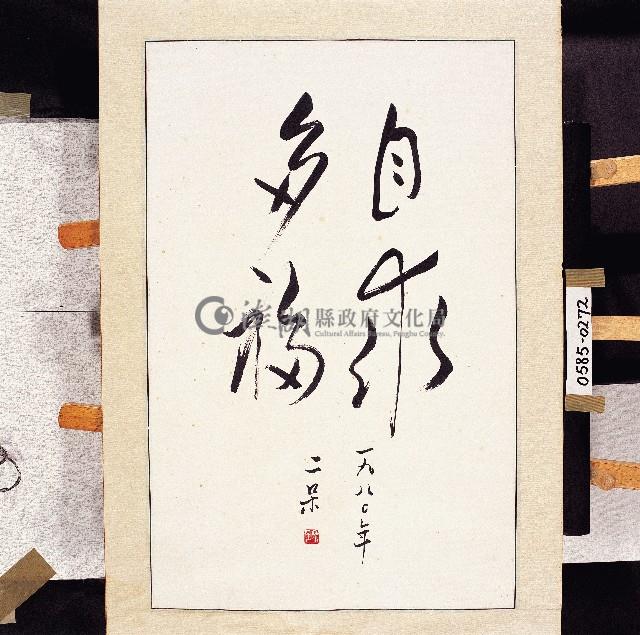 自求
多福
一九八〇年
二呆
澎湖縣政府文化局
Cultural Affairs Bureau, Penghu County.
0585-0272